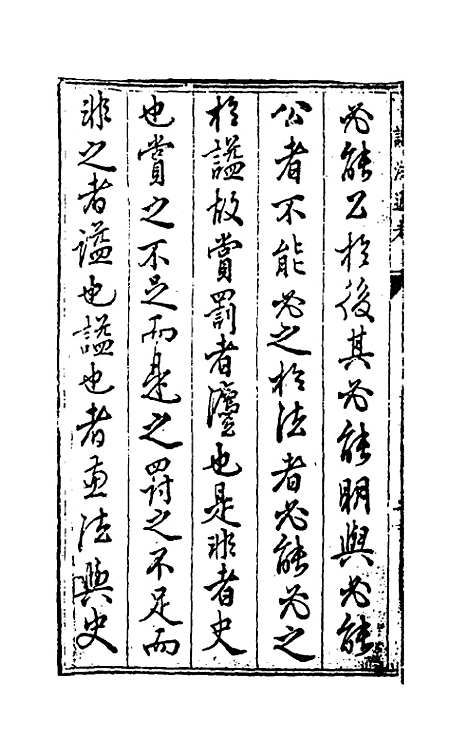 必能公於後其必能明與必能
公者不能必之於法者必能必之
於謚故賞罰者灋也是非者史
也賞之不足而是之罰之不足而
非之者謚也謚也者兼法與史
謚法通考